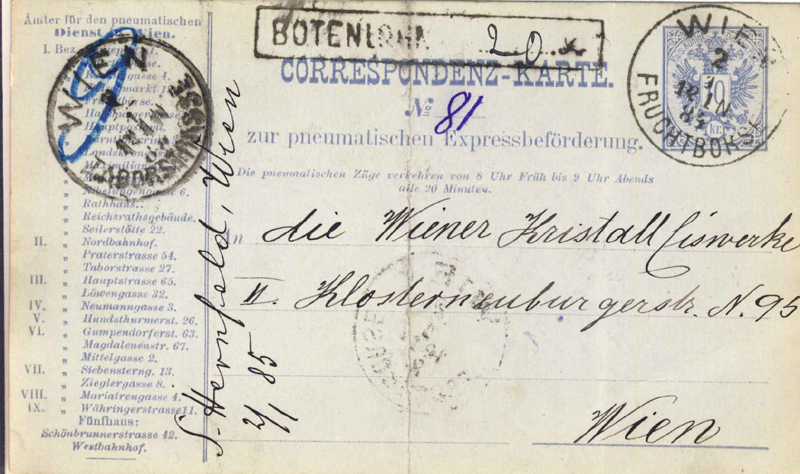 Ämter für den pneumatischen
Dienst in Wien.
I. Bez.
Hauptpostamt
Landskrong.
Maximilian
Nibelungengasse 6.
Rathhaus.
Reichsrathsgebäude.
Seilerstätte 22.
II. " Nordbahnhof.
" Praterstrasse 54.
" Taborstrasse 27.
III. " Hauptstrasse 65.
" Löwengasse 32.
IV. " Neumanngasse 3.
V. " Hundsthurmerst. 26.
VI. " Gumpendorferst. 63.
" Magdalenenstr. 67.
" Mittelgasse 2.
VII. " Siebensterng. 13.
" Zieglergasse 8.
VIII. " Mariatreugasse 4.
IX. " Währingerstrasse 11.
Fünfhaus:
Schönbrunnerstrasse 42.
Westbahnhof.
WIEN
BOTENLOHN 20 x
CORRESPONDENZ-KARTE.
No 81
zur pneumatischen Expressbeförderung.
Die pneumatischen Züge verkehren von 8 Uhr Früh bis 9 Uhr Abends
alle 20 Minuten.
WIEN
2
1
85
FRUCHTBÖRSE
10
KR.
An die Wiener Kristall Eiswerke
II. Klosterneuburgerstr. N. 95
Wien
S. Hernfeld, Wien
2/1 85